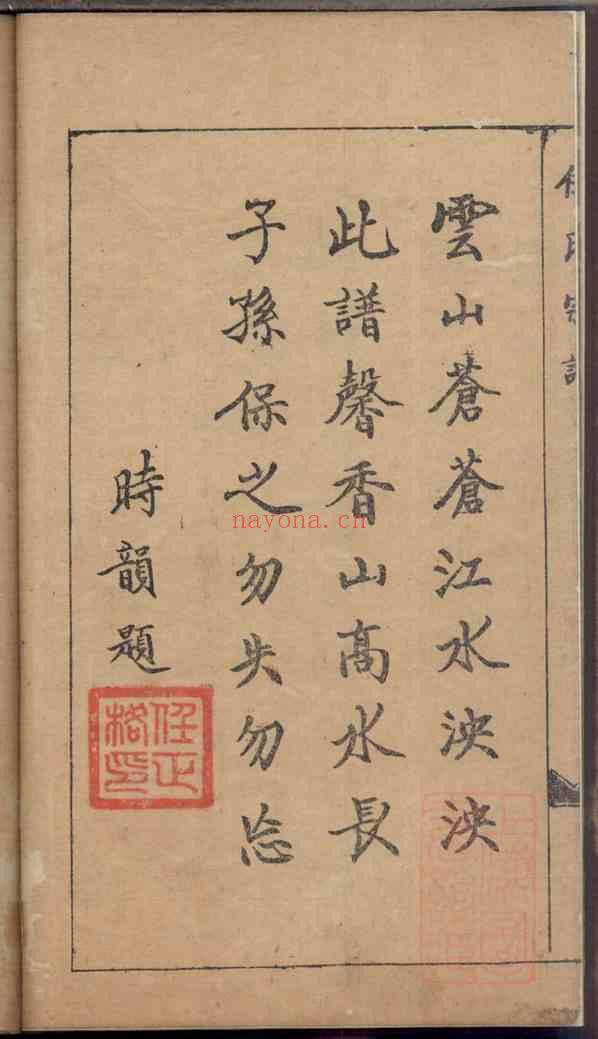 雲山蒼蒼江水泱泱
此譜馨香山高水長
子孫保之勿失勿忘
時韻題
任正
格印
nayona.cn